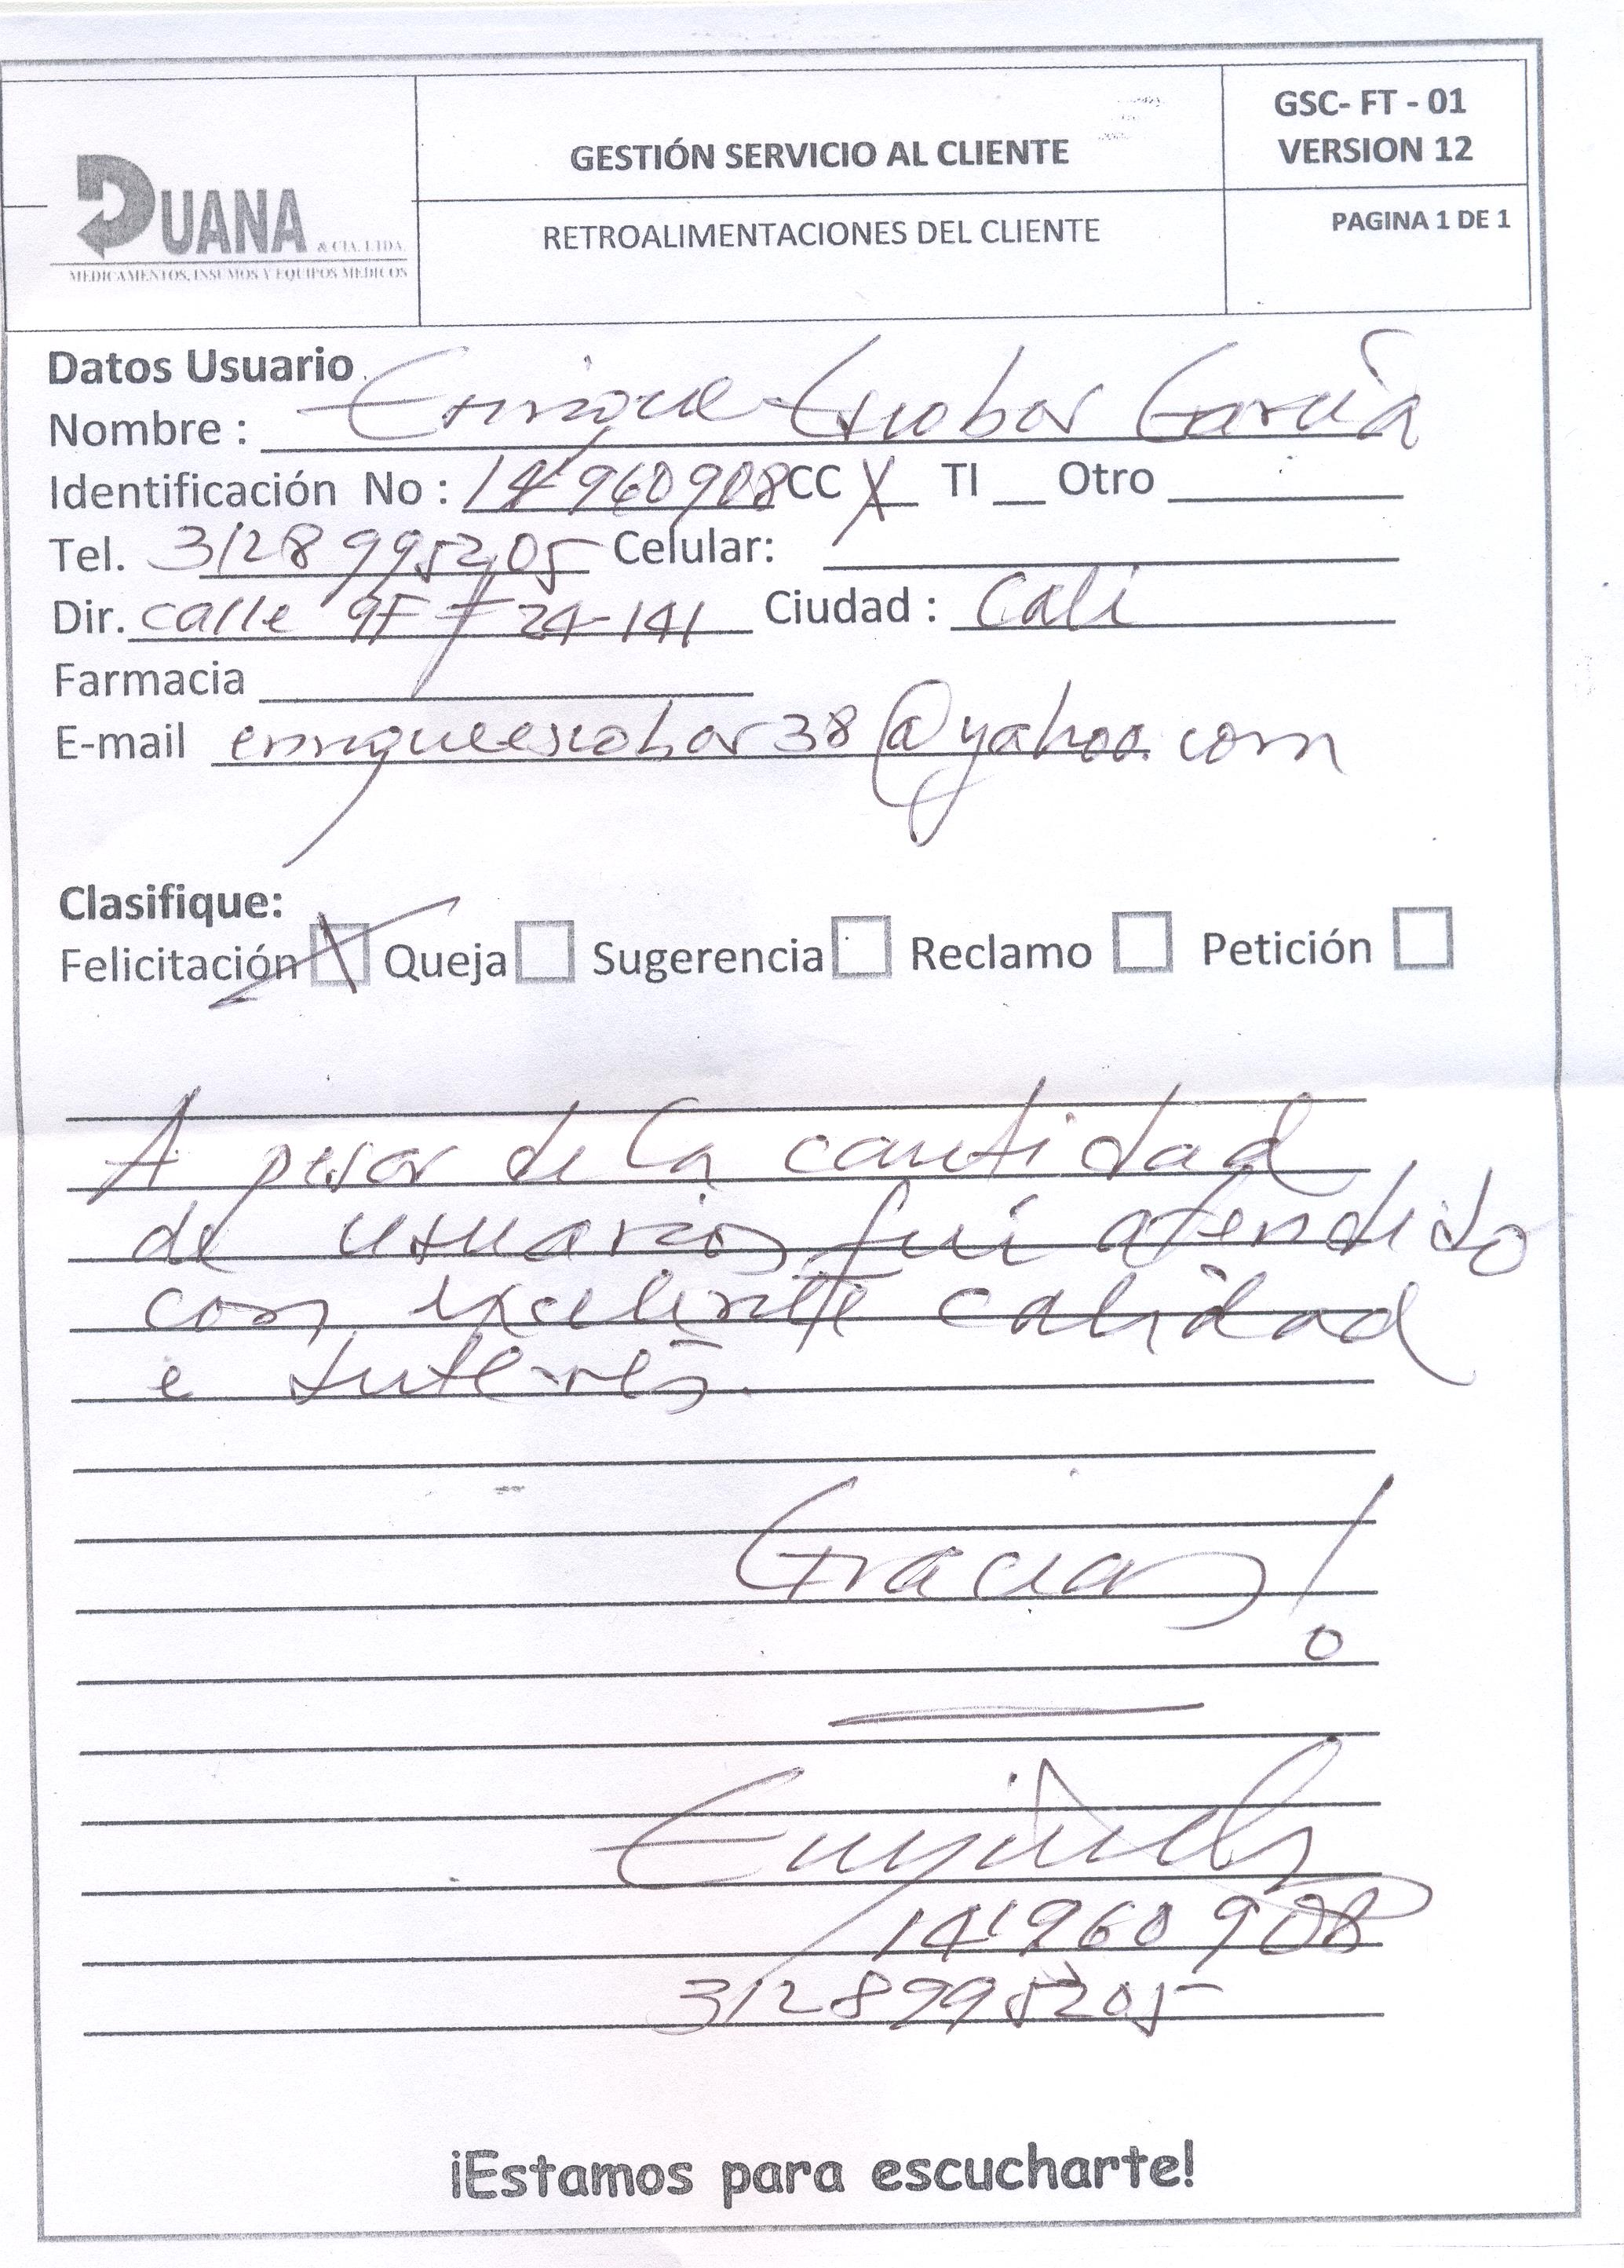 GSC- FT - 01
GESTIÓN SERVICIO AL CLIENTE
VERSION 12
DUANA & CIA. LTDA.
MEDICAMENTOS, INSUMOS Y EQUIPOS MEDICOS
RETROALIMENTACIONES DEL CLIENTE
PAGINA 1 DE 1
Datos Usuario
Nombre : Enrique Escobar García
Identificación No : 14'960908 CC X TI __ Otro
Tel. 3128995205 Celular:
Dir. calle 9F # 24-141 Ciudad : Cali
Farmacia
E-mail enriqueescobar38@yahoo.com
Clasifique:
Felicitación X Queja Sugerencia Reclamo Petición
A pesar de la cantidad
de usuarios fuí atendido
con excelente calidad
e interés.
Gracias!
14'960908
3128995205
¡Estamos para escucharte!